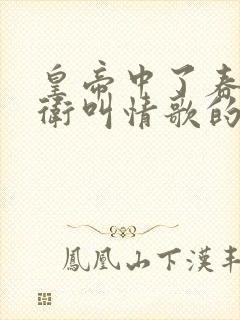 皇帝中了春
衛叫情歌的
鳳凰山下漢丰